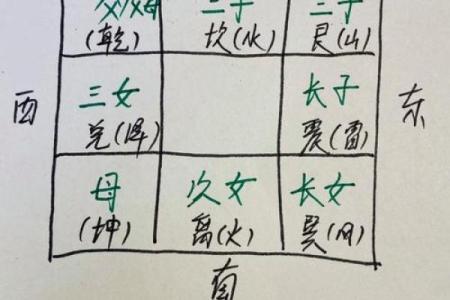 二子 三子
(乾) 坎(水) 艮(山)
三女 长子
西 东
兑(泽) 震(雷)
母 次女 长女
(坤) 离(火) 巽(风)
南